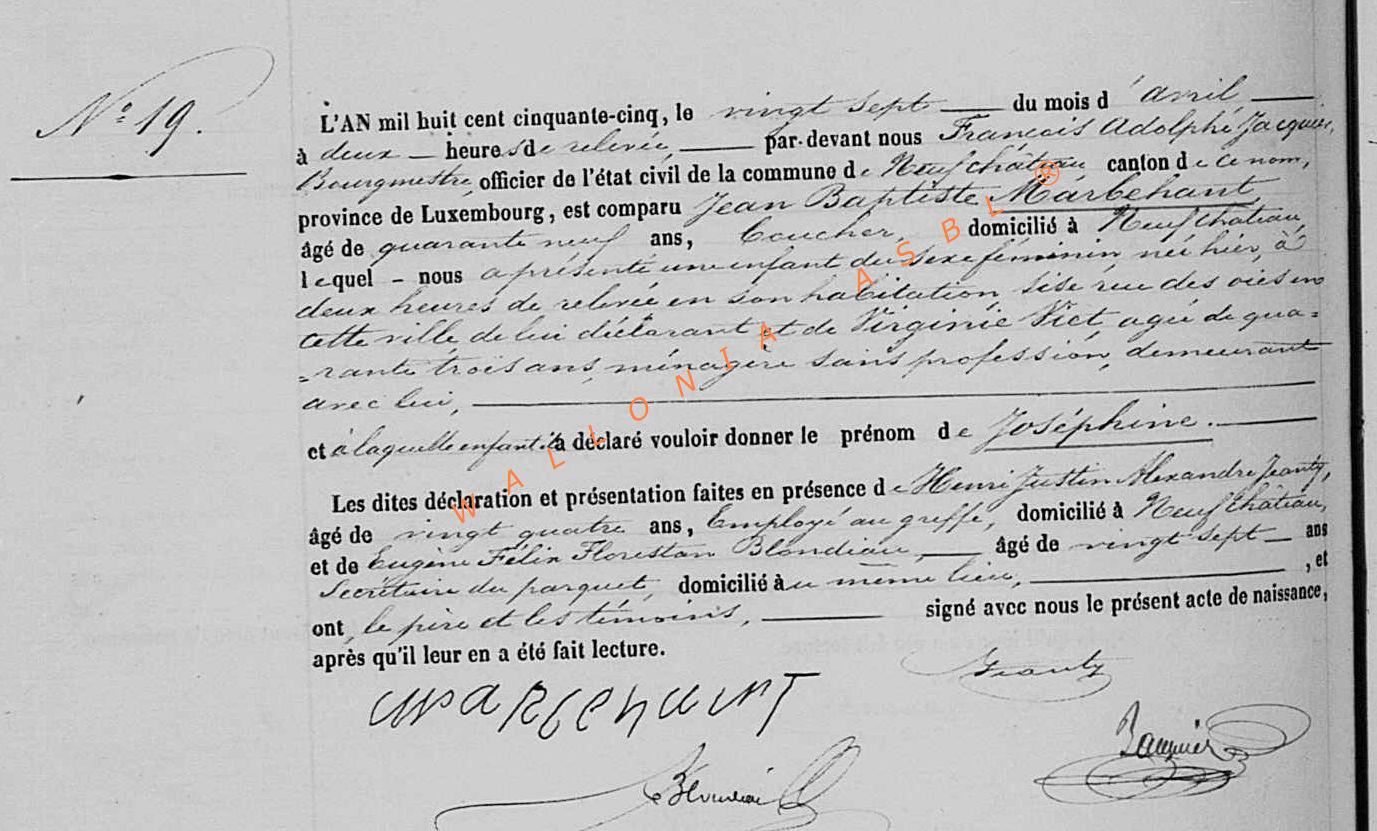 N° 19.
L'AN mil huit cent cinquante-cinq, le vingt sept du mois d'avril
à deux heures de relevée, par-devant nous François Adolphe Jacquier,
Bourgmestre, officier de l'état civil de la commune de Neufchâteau canton de ce nom,
province de Luxembourg, est comparu Jean Baptiste Marbehant
âgé de quarante neuf ans, domicilié à Neufchâteau,
lequel nous a présenté une enfant du sexe féminin, née hier, à
deux heures de relevée en son habitation sise rue des oies en
cette ville de lui déclarant et de Virginie Pict, agée de qua=
=rante trois ans, ménagère sans profession, demeurant
avec lui,
et à laquelle enfant il a déclaré vouloir donner le prénom de Joséphine.
Les dites déclaration et présentation faites en présence de Henri Justin Alexandre Jeanty,
âgé de vingt quatre ans, Employé au greffe, domicilié à Neufchâteau,
et de Eugène Félix Florestan Blondiau, âgé de vingt sept ans
Secrétaire du parquet, domicilié au même lieu, , et
ont le père et les témoins, signé avec nous le présent acte de naissance,
après qu'il leur en a été fait lecture.
Jeanty
MARBEHANT
Jacquier
Blondiau
WALLONIA ASBL ®